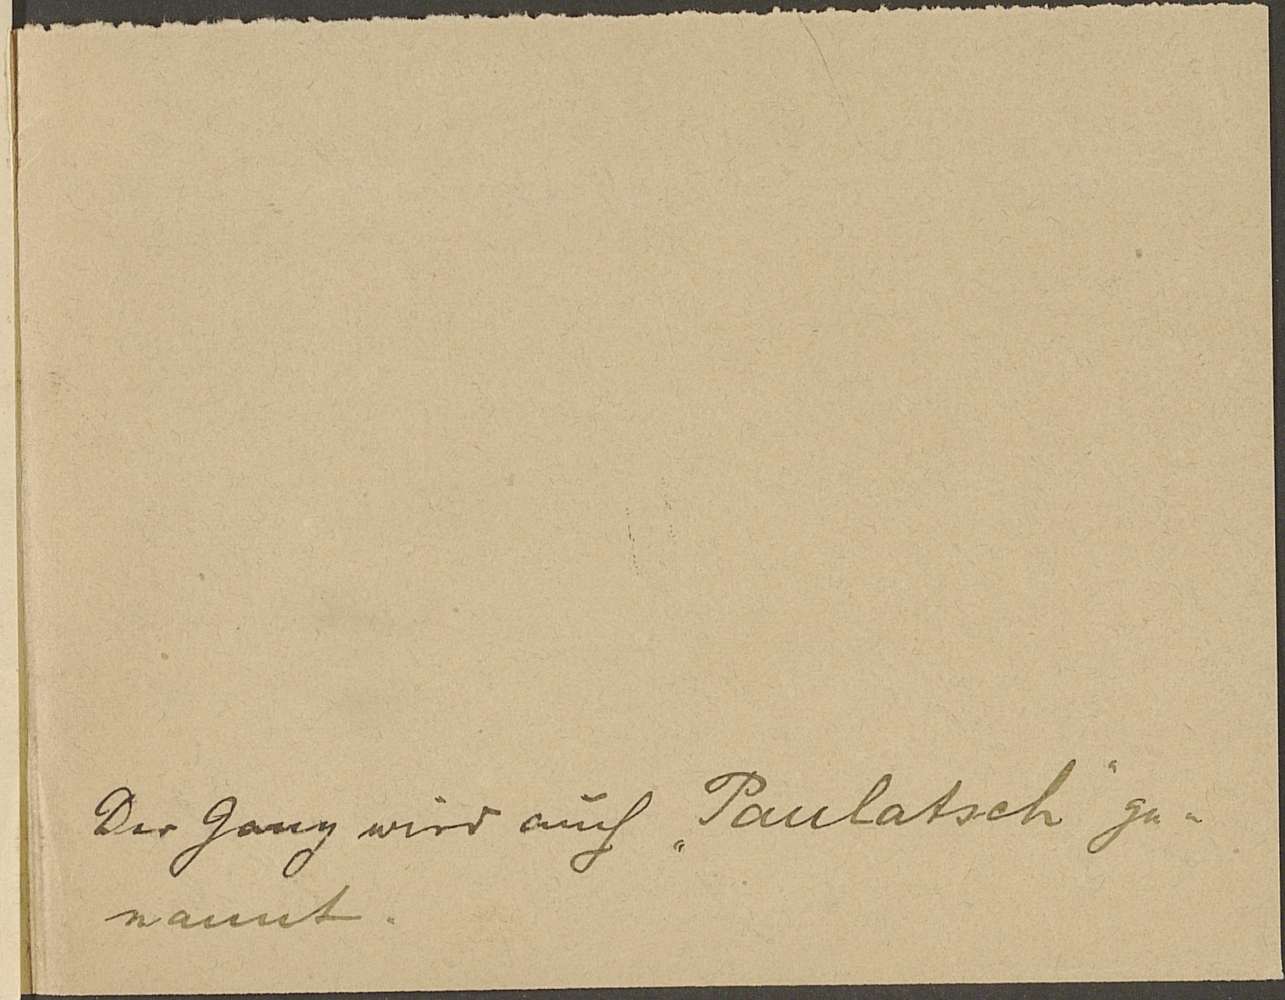 Der Gang wird auch „Paulatsch“ ge-
nannt.